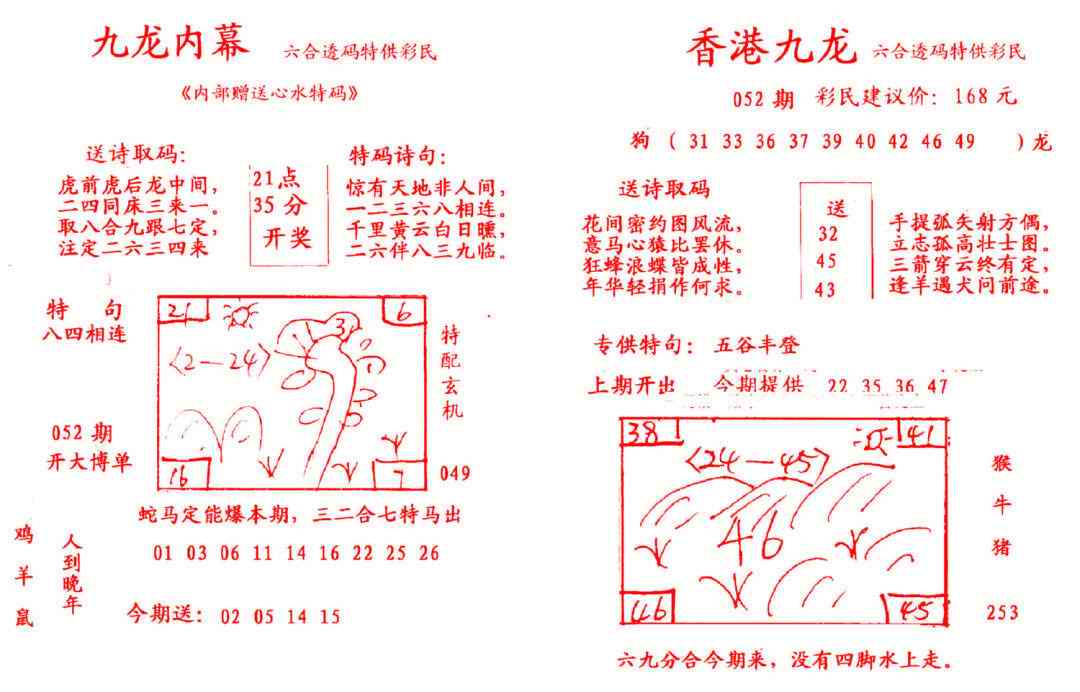 九龙内幕 六合透码特供彩民
《内部赠送心水特码》
送诗取码：
虎前虎后龙中间，
二四同床三来一。
取八合九跟七定，
注定二六三四来
21点
35分
开奖
特码诗句：
惊有天地非人间，
一二三六八相连。
千里黄云白日曛，
二六伴八三九临。
特 句
八四相连
052期
开大博单
21
6
〈2—24〉
3
16
7
特配玄机
049
蛇马定能爆本期，三二合七特马出
鸡羊鼠
人到晚年
01 03 06 11 14 16 22 25 26
今期送：02 05 14 15
香港九龙 六合透码特供彩民
052期 彩民建议价：168元
狗（31 33 36 37 39 40 42 46 49 ）龙
送诗取码
花间密约图风流，
意马心猿比罢休。
狂蜂浪蝶皆成性，
年华轻捐作何求。
送
32
45
43
手提弧矢射方偶，
立志孤高壮士图。
三箭穿云终有定，
逢羊遇犬问前途。
专供特句：五谷丰登
上期开出 今期提供 22 35 36 47
38
41
〈24—45〉
46
46
45
猴牛猪
253
六九分合今期来，没有四脚水上走。